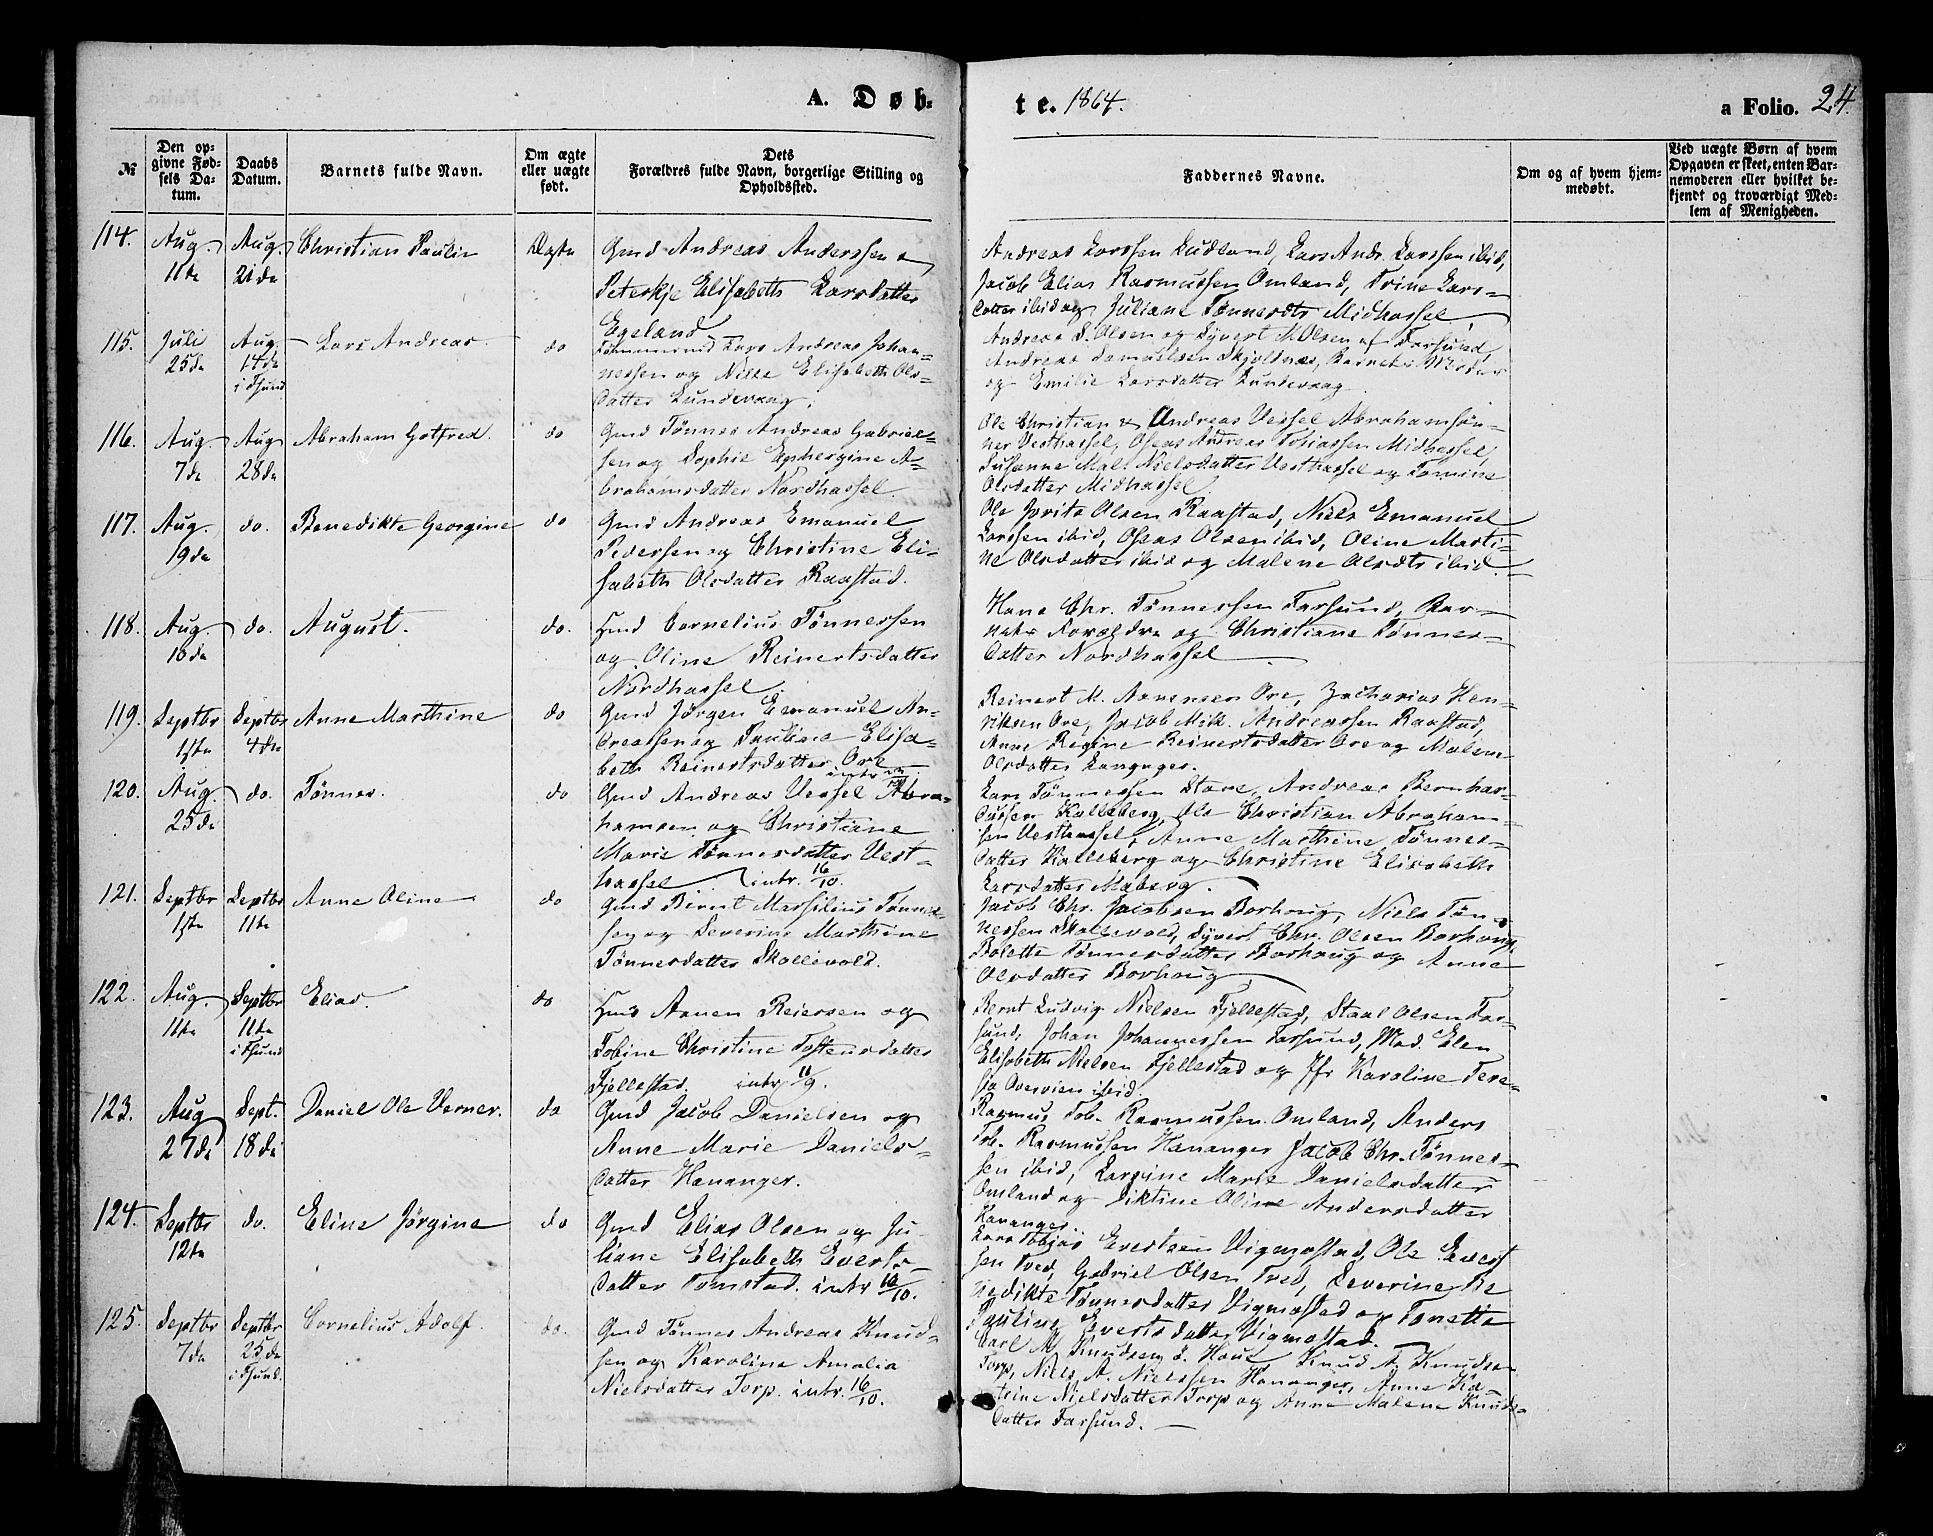 A. Døb-
te. 1864.
a Folio. 24.
№
Den op-
givne Fød-
sels Da-
tum.
Daabs
Datum.
Barnets fulde Navn.
Om ægte
eller uægte
født.
Dets
Forældres fulde Navn, borgerlige Stilling og
Opholdssted.
Faddernes Navne.
Om og af hvem hjem-
medøbt.
Ved uægte Børn af hvem
Opgaven er skeet, enten Bar-
nemoderen eller hvilket be-
kjendt og troværdigt Med-
lem af Menigheden.
114.
Aug.
11te
Aug.
21de
Christian Paulin
Ægte
Gmd Andreas Anderssen og
Peterkje Elisabeth Larsdatter
Egeland
Andreas Larssen Ludland, Lars Andr. Larssen ibid,
Jacob Elias Rasmussen Omland, Trine Lars-
datter ibid og Juliane Tønnesdtr Midhassel
115.
Juli
25de
Aug.
14de
i Fsund
Lars Andreas
do
Tømmermd Lars Andreas Johan-
nessen og Nille Elisabeth Ols-
datter Lundevaag.
Andreas S. Olsen og Syvert M. Olsen af Farsund,
Andreas Samuelsen Skjoldnes, Barnets Moder
og Emilie Larsdatter Lundevaag
116.
Aug
7de
Aug
28de
Abraham Gotfred.
do
Gmd Tønnes Andreas Gabriel-
sen og Sophie Ephergine A-
brahamsdatter Nordhassel.
Ole Christian & Andreas Vessel Abrahamsøn-
ner Vesthassel, Oseas Andreas Tobiassen Midhassel,
Susanne Mal. Nielsdatter Vesthassel og Tomine
Olsdatter Midhassel.
117.
Aug.
19de
do.
Benedikte Georgine
do
Gmd Andreas Emanuel
Pedersen og Christine Eli-
sabeth Olsdatter Raastad.
Ole Jorits Olsen Raastad, Niels Emanuel
Larssen ibid, Oseas Olsen ibid, Oline Marti-
ne Olsdatter ibid og Malene Olsdtr ibid.
118.
Aug.
10de
do.
August.
do.
Hmd Cornelius Tønnessen
og Oline Reinertsdatter
Nordhassel
Hans Chr. Tønnessen Farsund, Bar-
nets Forældre og Christiane Tønnes-
datter Nordhassel
119.
Septbr
1ste
Septbr
4de
Anne Marthine
do
Gmd Jørgen Emanuel An-
dreassen og Pauline Elisa-
beth Reinertsdatter Ore
Reinert M. Aanensen Ore, Zacharias Hen-
riksen Ore, Jacob Mik. Andreassen Raastad,
Anne Regine Reinertsdatter Ore og Malene
Olsdatter Langager.
120.
Aug.
25de
do.
Tønnes.
do
Gmd Andreas Vessel Abra-
hamsen og Christiane
Marie Tønnesdatter Vest-
hassel intr. 16/10.
Lars Tønnessen Stave, Andreas Bernhar-
dussen Kalleberg, Ole Christian Abraham-
sen Vesthassel, Anne Marthine Tønnes-
datter Kalleberg og Christine Elisabeth
Larsdatter Maberg.
121.
Septbr
1ste
Septbr
11te
Anne Oline
do
Gmd Berent Marsilius Tønnes-
sen og Severine Marthine
Tønnesdatter Skollevold.
Jacob Chr. Jacobsen Borhoug, Niels Tøn-
nessen Skollevold, Syvert Chr. Olsen Borhoug,
Bolette Tønnesdatter Borhoug og Anne
Olsdatter Borhoug
122.
Aug.
11te
Septbr
11te
i Fsund
Elias.
do
Hmd Aanen Reiersen og
Tobine Christine Tostensdatter
Fjellestad. intr. 11/9.
Bernt Ludvig Nielsen Fjellestad, Staal Olsen Far-
sund, Johan Johannessen Farsund, Mad. Elen
Elisabeth Nielsen Fjellestad og Jfr Karoline Tere-
sia Overvien ibid.
123.
Aug
27de
Sept.
18de
Daniel Ole Verner.
do
Gmd Jacob Danielsen og
Anne Marie Daniels-
datter Hananger.
Rasmus Tob. Rasmussen Omland, Anders
Tob. Rasmussen Hananger Jacob Chr. Tønnes-
sen ibid, Largine Marie Danielsdatter
Omland og Siktine Oline Andersdatter
Hananger.
124.
Septbr
12te
do.
Eline Jørgine
do
Gmd Elias Olsen og Ju-
liane Elisabeth Everts-
datter Tomstad. intr 16/10.
Lars Tobias Evertsen Vigmostad, Ole Evert
sen Tved, Gabriel Olsen Tved, Severine Be
nedikte Tønnesdatter Vigmostad og Tonette
Pauline Evertsdatter Vigmostad.
125.
Septbr
7de
Septbr
25de
i Fsund.
Cornelius Adolf.
do.
Gmd Tønnes Andreas Knud-
sen og Karoline Amalia
Nielsdatter Torp. intr. 16/10.
Carl M. Knudsen S. Hout, Knud A. Knudsen
Torp, Niels A. Nielssen Hananger, Anne Ka-
trine Nielsdatter Torp og Anne Malene Knuds-
datter Farsund.